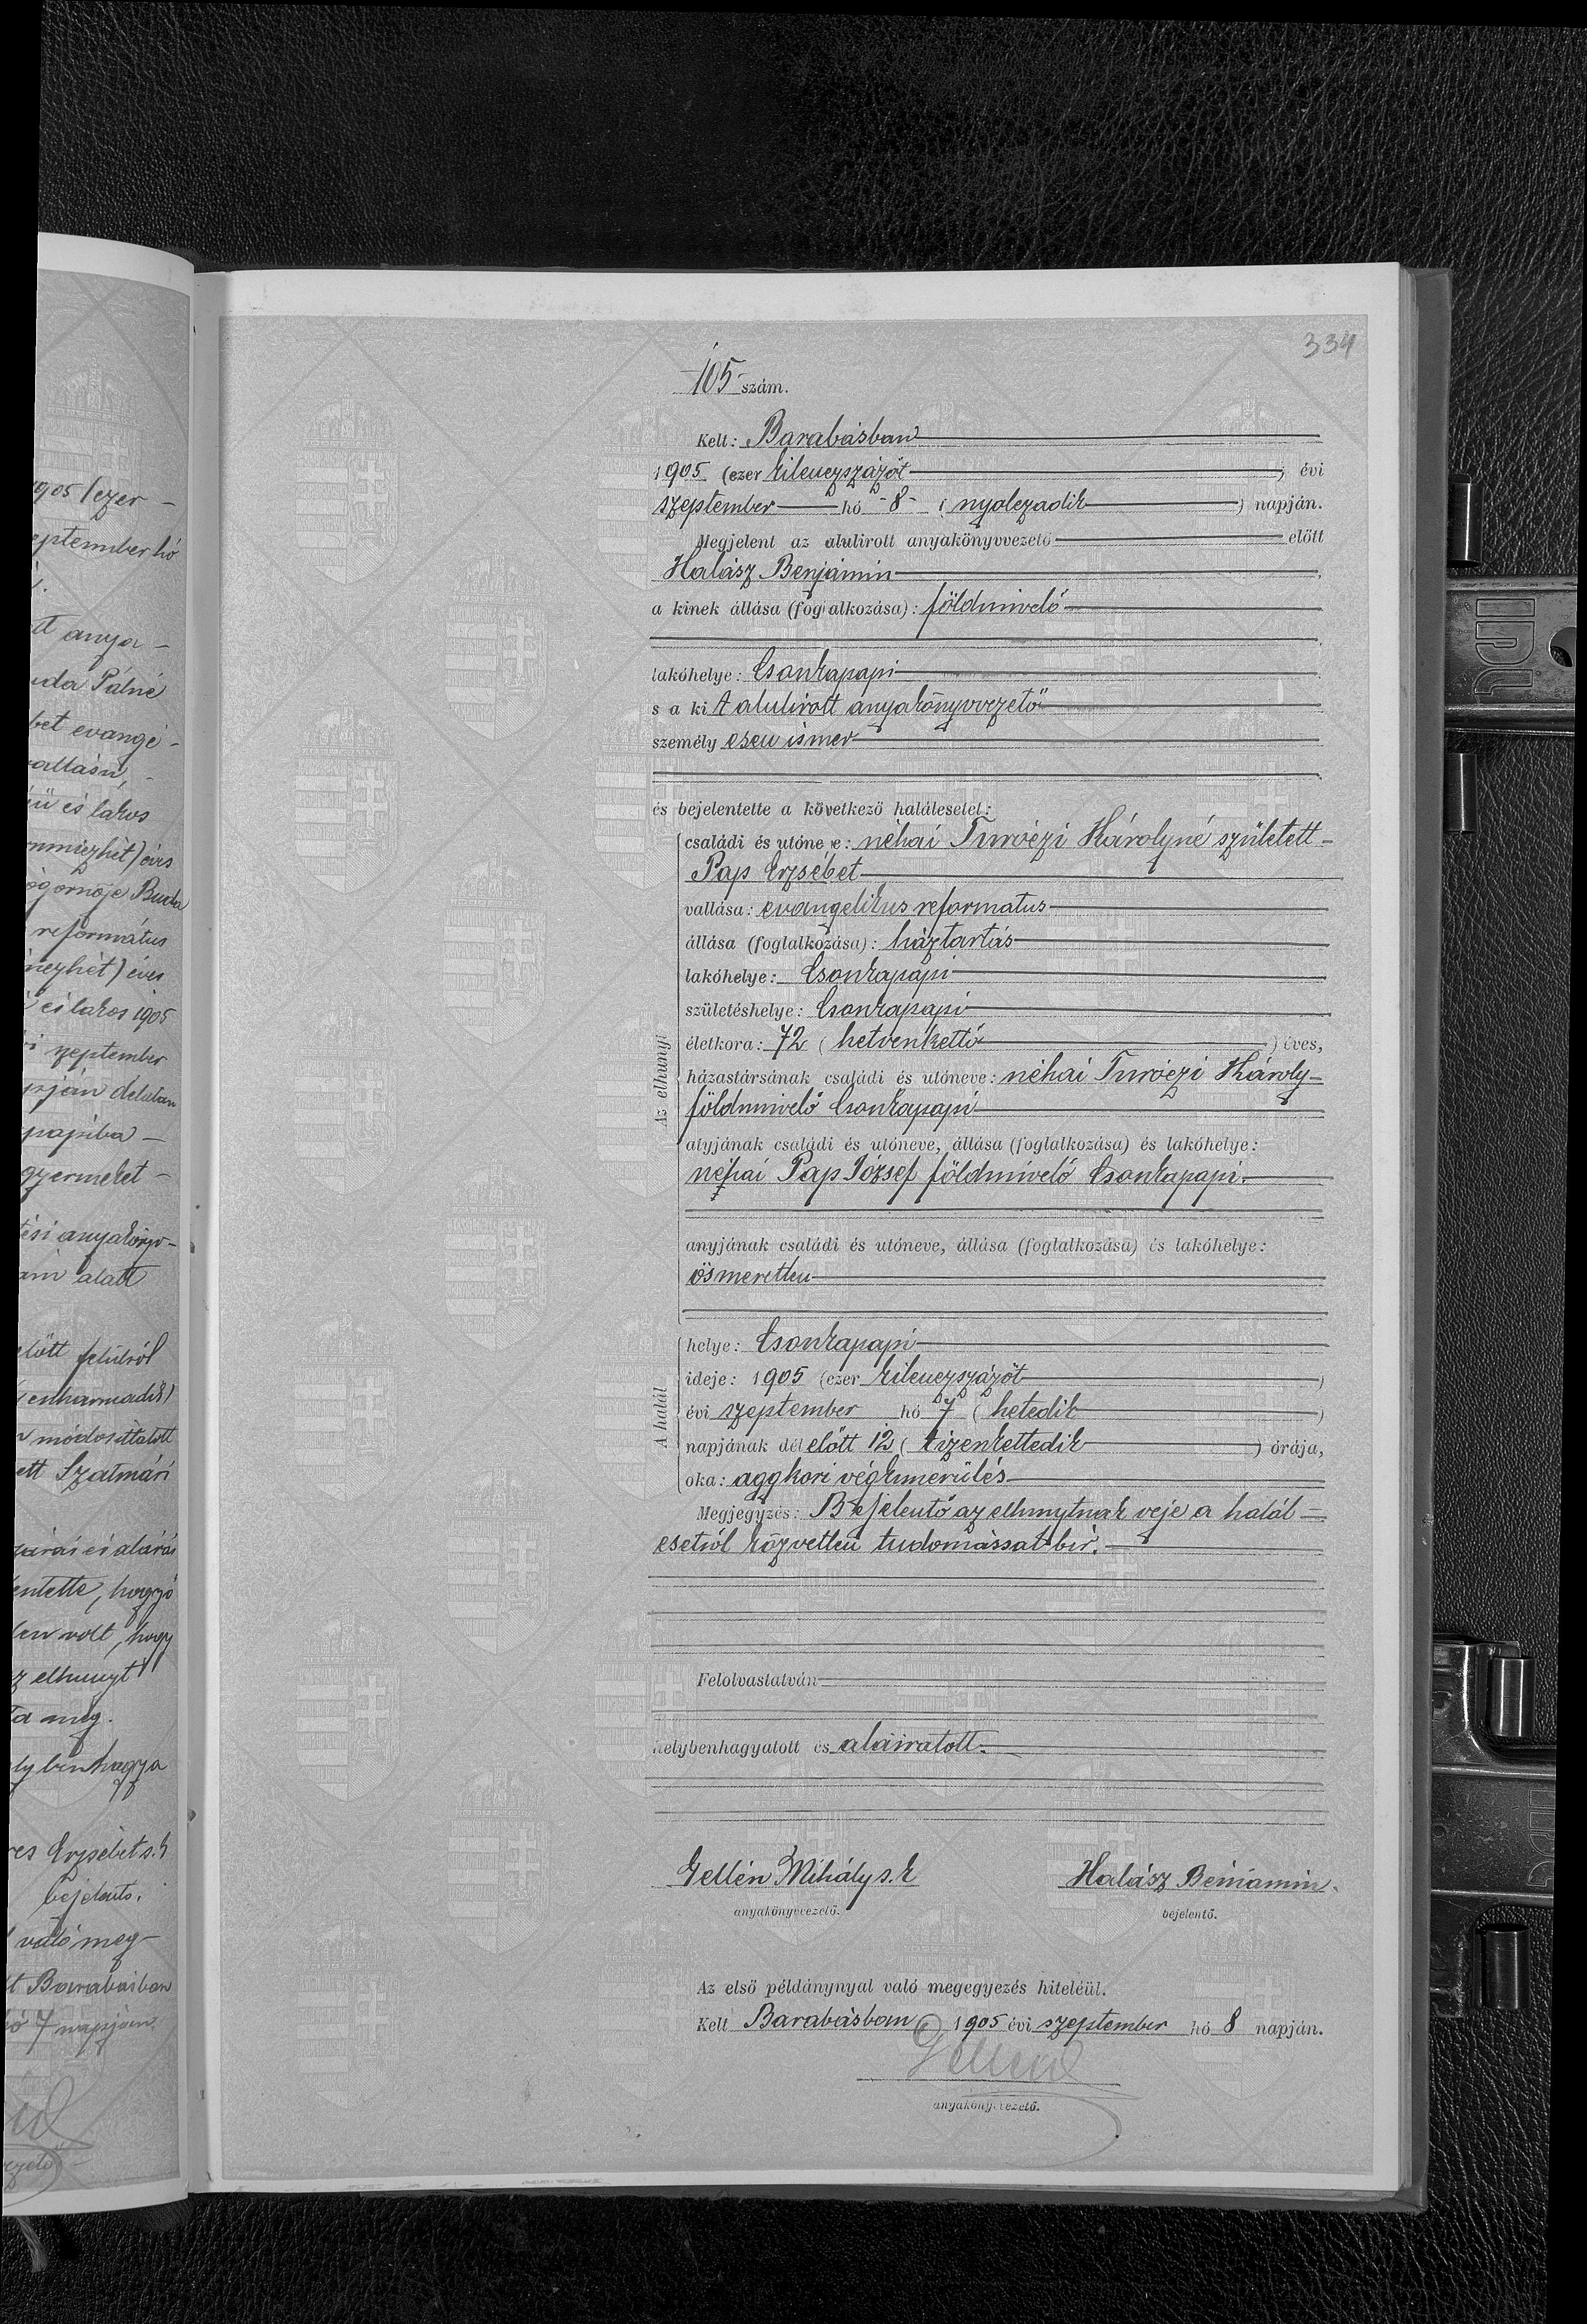 1905 (ezer -
eptember hó
tt anya -
uda Pálné
bet evangé -
vallású, -
ü és lakos
nmiczhét) éves
ógornője Buda
református
nczhét) éves
és lakos 1905
szeptember
pján délután
papiba -
gyermekét -
tési anyakönyv-
ám alatt
előtt felülről
(enharmadik)
módosíttatott
ett Szatmári
zárás és aláírás
entette, hogy ő
len volt, hogy
z elhunyt
ta meg.
lyben hagyva
res Erzsébet s. k
bejelentő.
való meg-
lt Barabásban
hó 7 napján
334
105 szám.
Kelt: Barabásban
1905 (ezer kilenczszázöt) évi
szeptember hó -8- (nyolczadik) napján.
Megjelent az alulirott anyakönyvvezető előtt
Halász Benjámin
a kinek állása (foglalkozása): földmivelő
lakóhelye: Csonkapapi
s a kit alulirott anyakönyvvezető
személyesen ismer
és bejelentette a következő halálesetet:
Az elhunyt
családi és utóneve: néhai Turóczi Károlyné született -
Pap Erzsébet
vallása: evangelikus reformatus
állása (foglalkozása): háztartás
lakóhelye: Csonkapapi
születéshelye: Csonkapapi
életkora: 72 (hetvenkettő) éves,
házastársának családi és utóneve: néhai Turóczi Károly
földmivelő Csonkapapi
atyjának családi és utóneve, állása (foglalkozása) és lakóhelye:
néhai Pap József földmivelő Csonkapapi.
anyjának családi és utóneve, állása (foglalkozása) és lakóhelye:
ösmeretlen
A halál
helye: Csonkapapi
ideje: 1905 (ezer kilenczszázöt)
évi szeptember hó 7 (hetedik)
napjának délelőtt 12 (tizenkettedik) órája,
oka: aggkori végkimerülés
Megjegyzés: Bejelentő az elhunytnak veje a halál =
esetről közvetlen tudomással bir.
Felolvastatván
helybenhagyatott és aláiratott.
Gellén Mihály s. k
anyakönyvvezető.
Halász Beniamin.
bejelentő.
Az első példánynyal való megegyezés hiteléül.
Kelt Barabásban 1905 évi szeptember hó 8 napján.
Gellén
anyakönyvvezető.